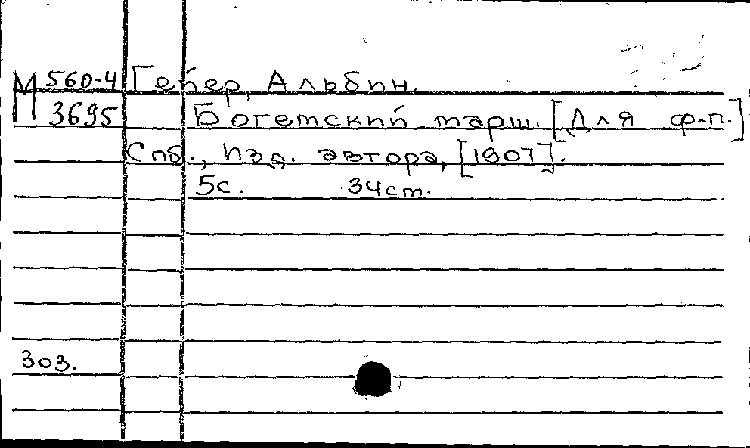 М 560-4 Гейер, Альбин.
3695 Богемский марш. [Для ф-п.]
Спб., Изд. автора, [1907].
5с. 34ст.
303.